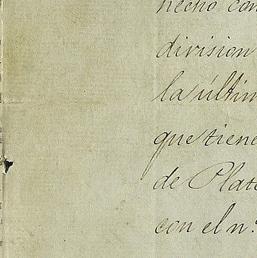 hecho con
division
la últim
que tiene
de Plat
con el nº